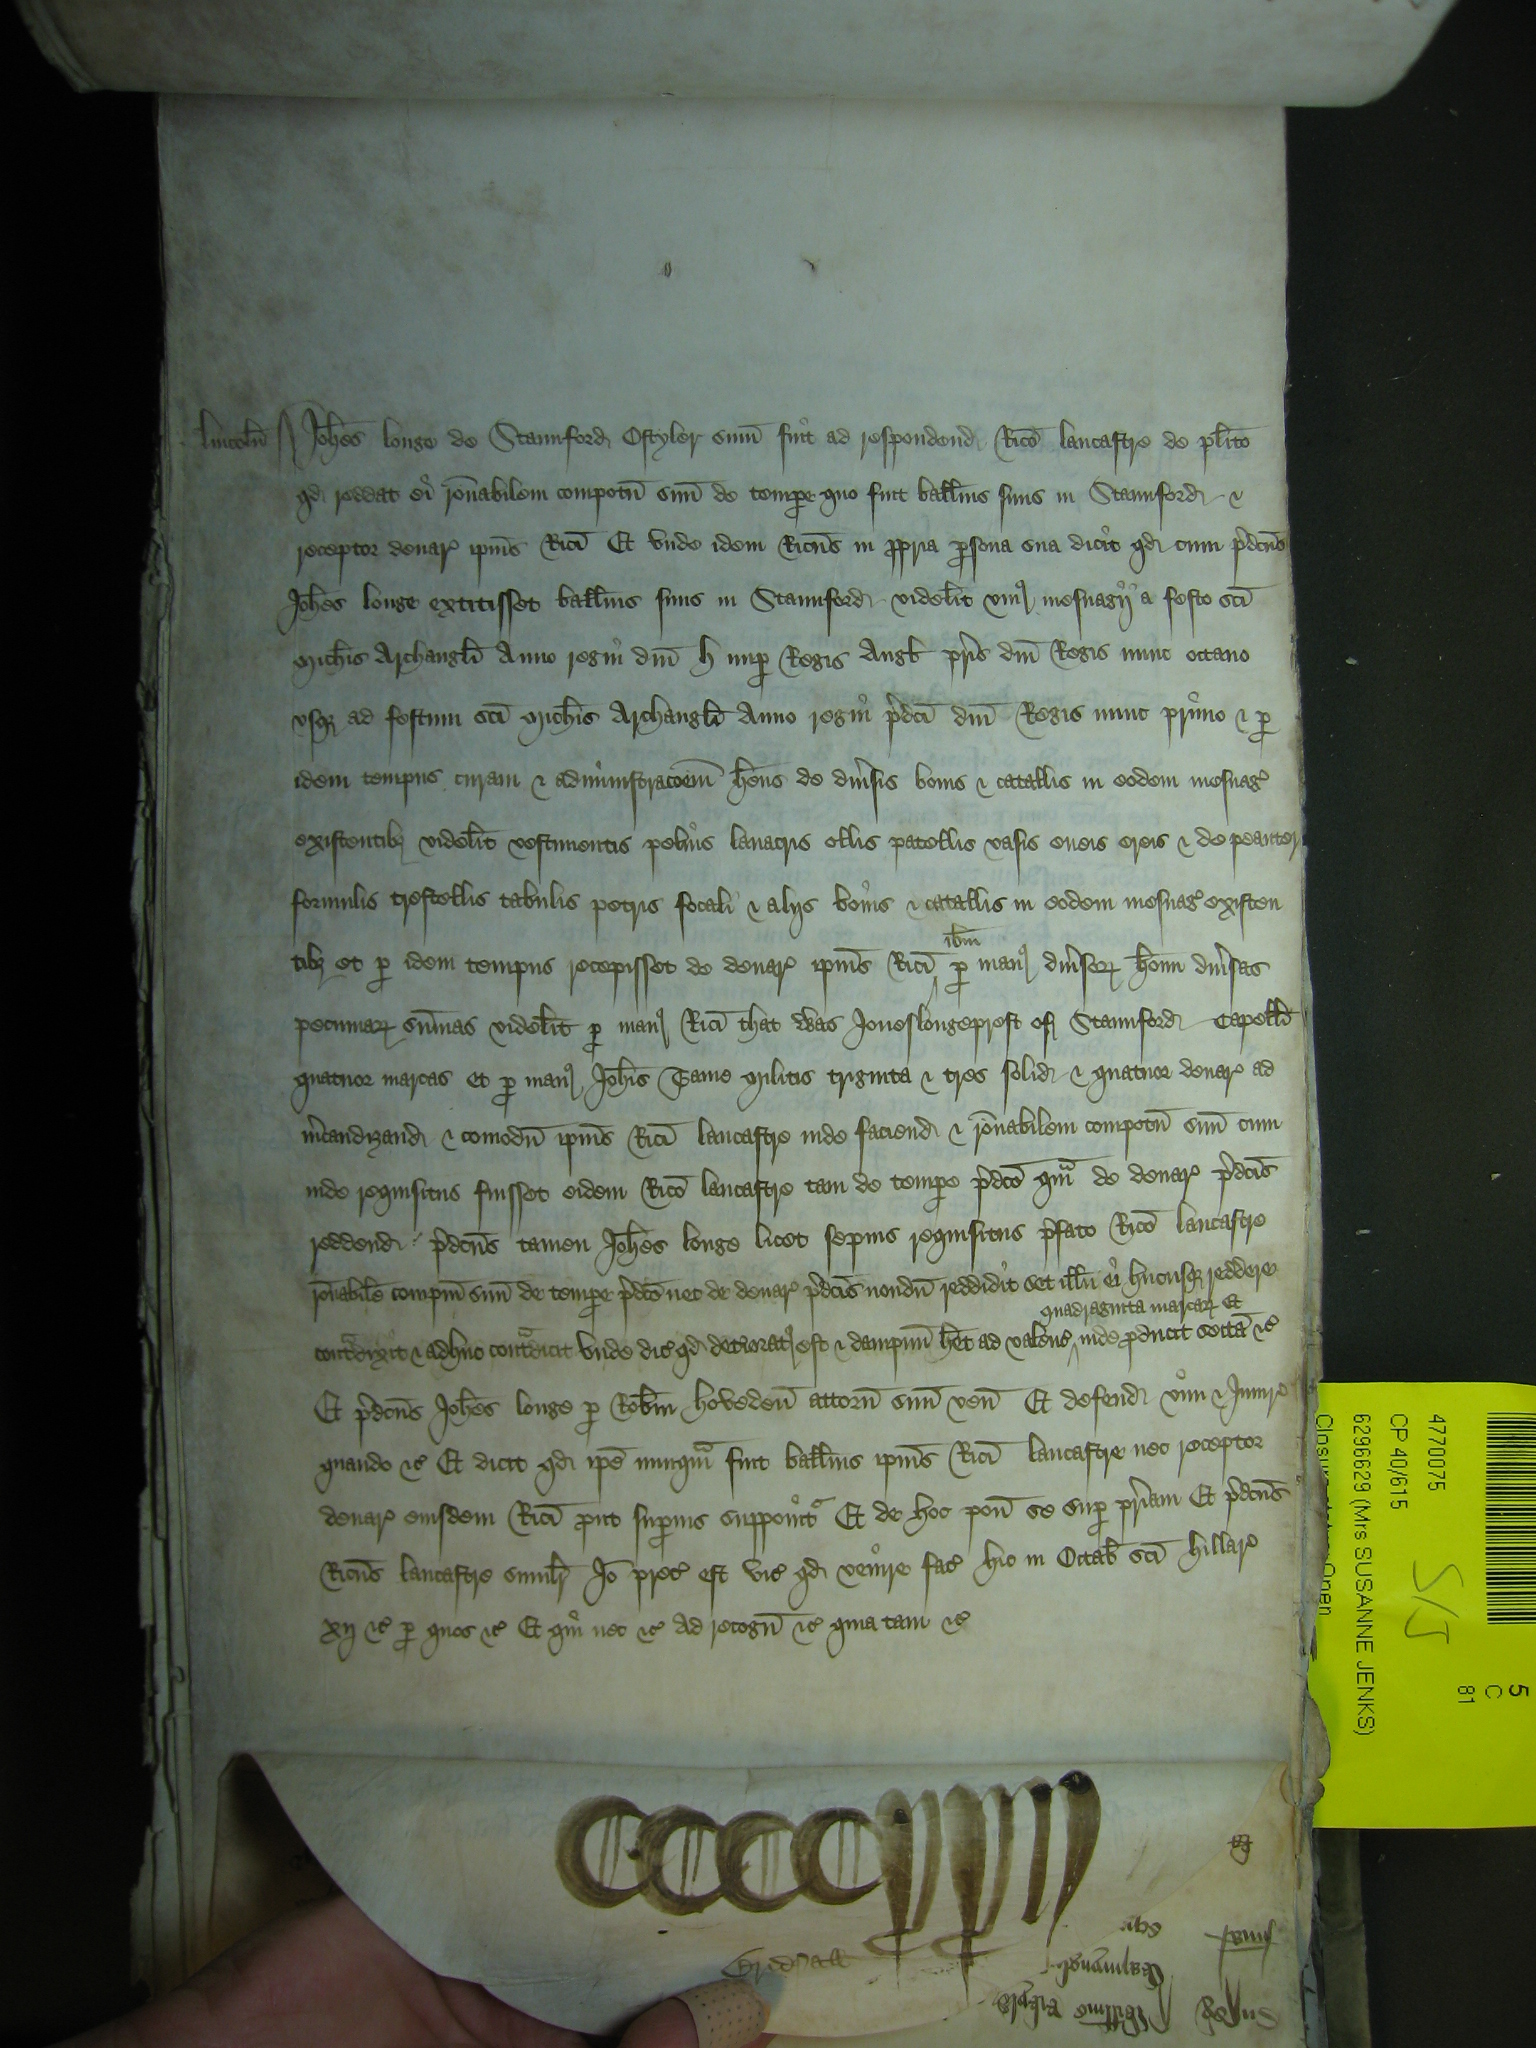 Lincoln Johes Longe de Staunford Ostyler sum fuit ad respondend Rico Lancastre de plito
qd reddat ei ronabilem compotu suu de tempe quo fuit ballius suus in Staunford &
receptor denar ipius Rici Et unde idem Ricus in ppria psona sua dicit qd cum pdcus
Johes Longe extitisset ballius suus in Staunford videlit uni mesuagii a festo sci
Michis Archangli Anno regni dni H nup Regis Angl pris dni Regis nunc octavo
usq ad festum sci Michis Archangli Anno regni pdci dni Regis nunc primo & p
idem tempus curam & administracoem hens de divsis bonis & catallis in eodem mesuag
existentib videlit vestimentis pelvis lavacris ollis patellis vasis eneis ereis & de peauter
formulis trestellis tabulis petris focali & aliis bonis & catallis in eodem mesuag existen
tib et p idem tempus recepisset de denar ipius Rici ibm p man divsor homi divsas
pecuniar summas videlit p man Rici that was Joneslongeprest of Staunford Capelli
quatuor marcas et p man Johis Tame Militis triginta & tres solid & quatuor denar ad
mcandizand & comodu ipius Rici Lancastre inde faciend & ronabilem compotu suu cum
inde requisitus fuisset eidem Rico Lancastre tam de tempe pdco qm de denar pdcis
reddend pdcus tamen Johes Longe licet sepius requisitus pfato Rico Lancastre
ronabile compm suu de tempe pdco nec de denar pdcis nondu reddidit set illu ei hucusq reddere
contdixit & adhuc contdicit unde dic qd deteriorat est & dampnu het ad valenc quadraginta marcar Et inde pducit sectam &c
Et pdcus Johes Longe p Robtm Hoveden attorn suu ven Et defend vim & injur
quando &c Et dicit qd ipe nunqm fuit ballius ipius Rici Lancastre nec receptor
denar eiusdem Rici put supius supponit Et de hoc pon se sup priam Et pdcus
Ricus Lancastre simili Io prec est vic qd venire fac hic in Octab sci Hillar
xij &c p quos &c Et qi nec &c Ad recogn &c quia tam &c
4770075
CP 40/615
6296629 (Mrs SUSANNE JENKS)
S/J
5
C
81